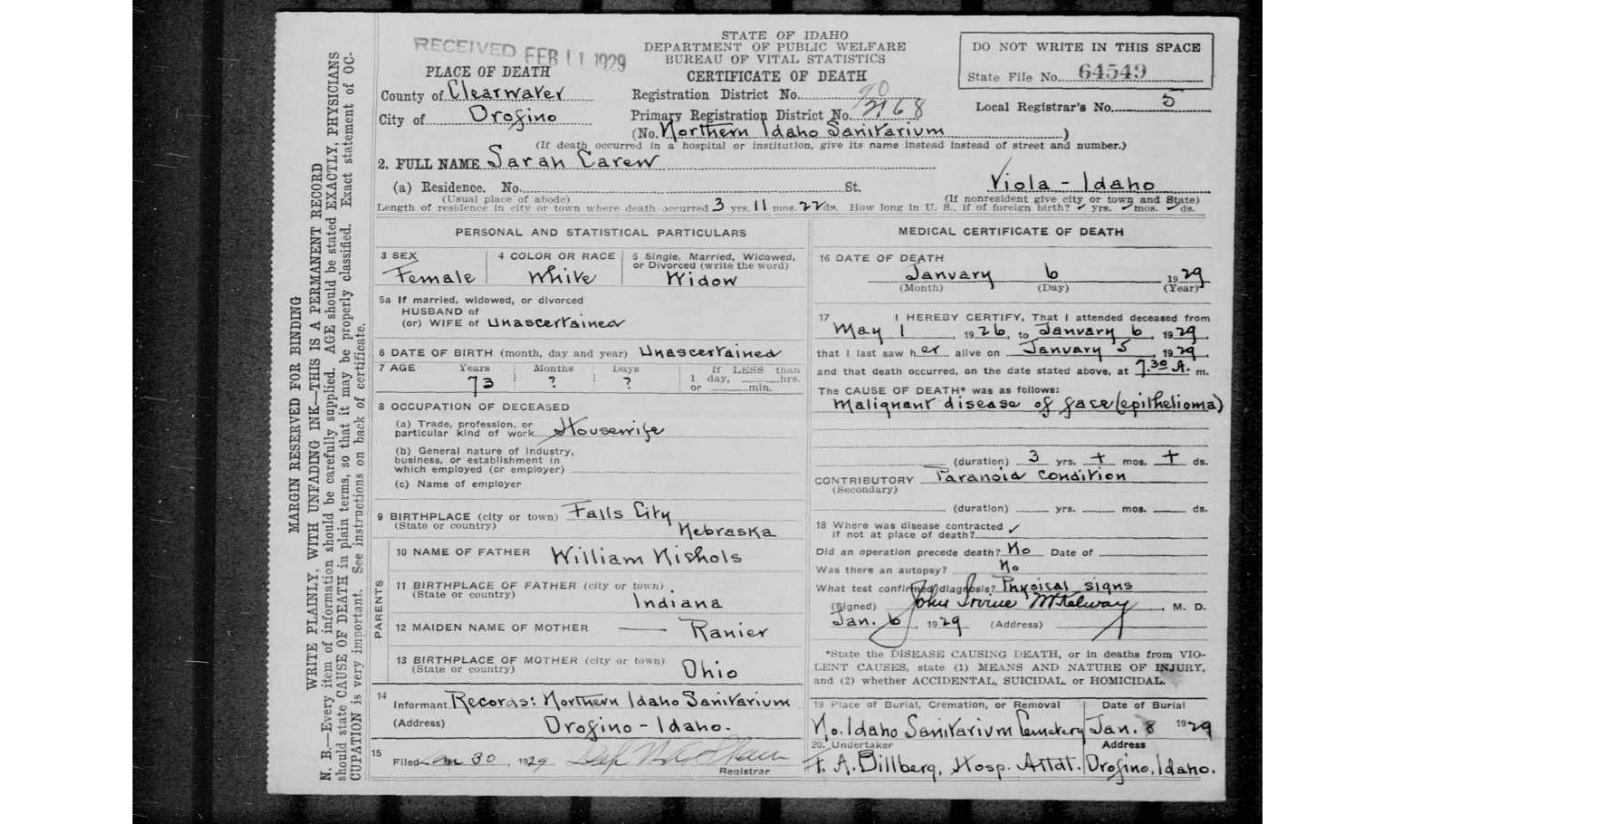 MARGIN RESERVED FOR BINDING
WRITE PLAINLY, WITH UNFADING INK—THIS IS A PERMANENT RECORD
N. B.—Every item of information should be carefully supplied. AGE should be stated EXACTLY, PHYSICIANS
should state CAUSE OF DEATH in plain terms, so that it may be properly classified. Exact statement of OC-
CUPATION is very important. See instructions on back of certificate.
RECEIVED FEB 11 1929
STATE OF IDAHO
DEPARTMENT OF PUBLIC WELFARE
BUREAU OF VITAL STATISTICS
CERTIFICATE OF DEATH
DO NOT WRITE IN THIS SPACE
State File No. 64549
PLACE OF DEATH
County of Clearwater
Registration District No. 90
Local Registrar's No. 5
City of Orofino
Primary Registration District No. 2168
(No. Northern Idaho Sanitarium )
(If death occurred in a hospital or institution, give its name instead instead of street and number.)
2. FULL NAME Sarah Carew
(a) Residence. No. St. Viola - Idaho
(Usual place of abode) (If nonresident give city or town and State)
Length of residence in city or town where death occurred 3 yrs. 11 mos. 22 ds. How long in U. S., if of foreign birth? yrs. mos. ds.
PERSONAL AND STATISTICAL PARTICULARS
3 SEX
Female
4 COLOR OR RACE
White
5 Single, Married, Widowed,
or Divorced (write the word)
Widow
5a If married, widowed, or divorced
HUSBAND of
(or) WIFE of Unascertained
6 DATE OF BIRTH (month, day and year) Unascertained
7 AGE Years Months Days If LESS than
1 day, hrs.
73 ? ? or min.
8 OCCUPATION OF DECEASED
(a) Trade, profession, or
particular kind of work Housewife
(b) General nature of Industry,
business, or establishment in
which employed (or employer)
(c) Name of employer
9 BIRTHPLACE (city or town) Falls City
(State or country) Nebraska
PARENTS
10 NAME OF FATHER William Nichols
11 BIRTHPLACE OF FATHER (city or town)
(State or country) Indiana
12 MAIDEN NAME OF MOTHER — Ranier
13 BIRTHPLACE OF MOTHER (city or town)
(State or country) Ohio
14
Informant Records: Northern Idaho Sanitarium
(Address) Orofino - Idaho.
15
Filed Jan 30, 1929
Registrar
MEDICAL CERTIFICATE OF DEATH
16 DATE OF DEATH
January 6 1929
(Month) (Day) (Year)
17 I HEREBY CERTIFY, That I attended deceased from
May 1, 1926, to January 6, 1929
that I last saw her alive on January 5, 1929
and that death occurred, on the date stated above, at 7.30 A. m.
The CAUSE OF DEATH* was as follows:
Malignant disease of face (epithelioma)
(duration) 3 yrs. + mos. + ds.
CONTRIBUTORY Paranoid Condition
(Secondary)
(duration) yrs. mos. ds.
18 Where was disease contracted
if not at place of death? ✓
Did an operation precede death? No Date of
Was there an autopsy? No
What test confirmed diagnosis? Physical signs
(Signed) John Irvine McKelway, M. D.
Jan. 6, 1929 (Address)
*State the DISEASE CAUSING DEATH, or in deaths from VIO-
LENT CAUSES, state (1) MEANS AND NATURE OF INJURY,
and (2) whether ACCIDENTAL, SUICIDAL, or HOMICIDAL.
19 Place of Burial, Cremation, or Removal
No. Idaho Sanitarium Cemetery
Date of Burial
Jan. 8 1929
20. Undertaker
F. A. Dillberg, Hosp. Attdt.
Address
Orofino, Idaho.